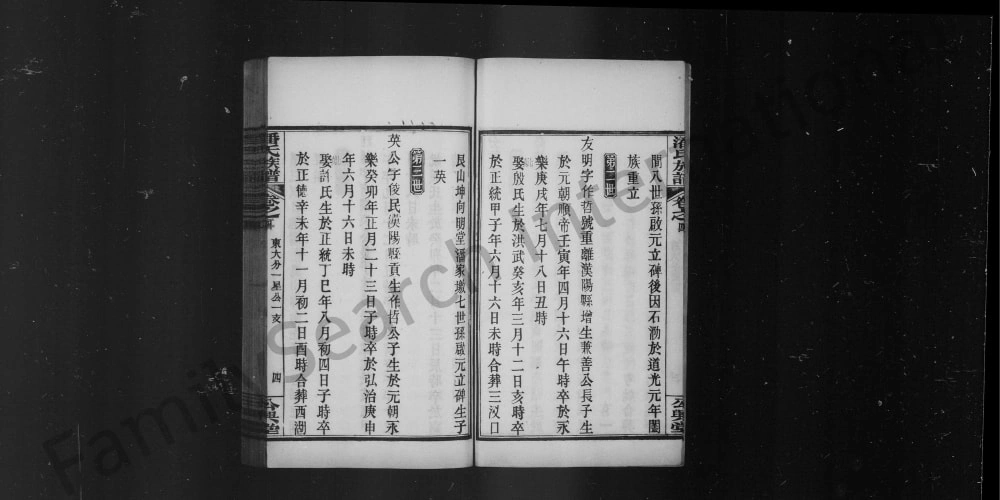 間八世孫啟元立碑後因石泐於道光元年闔
族重立
第二世
友明字作哲號重離漢陽縣增生兼善公長子生
於元朝順帝壬寅年四月十六日午時卒於永
樂庚戌年七月十八日丑時
娶殷氏生於洪武癸亥年三月十二日亥時卒
於正統甲子年六月十六日未時合葬三汊口
艮山坤向明堂潘家墩七世孫啟元立碑生子
一英
第三世
英公字俊民漢陽縣貢生作哲公子生於元朝永
樂癸卯年正月二十三日子時卒於弘治庚申
年六月十六日未時
娶許氏生於正統丁巳年八月初四日子時卒
於正德辛未年十一月初二日酉時合葬西湖
潘氏族譜
東大分一星公一支
四
公興堂
FamilySearch International